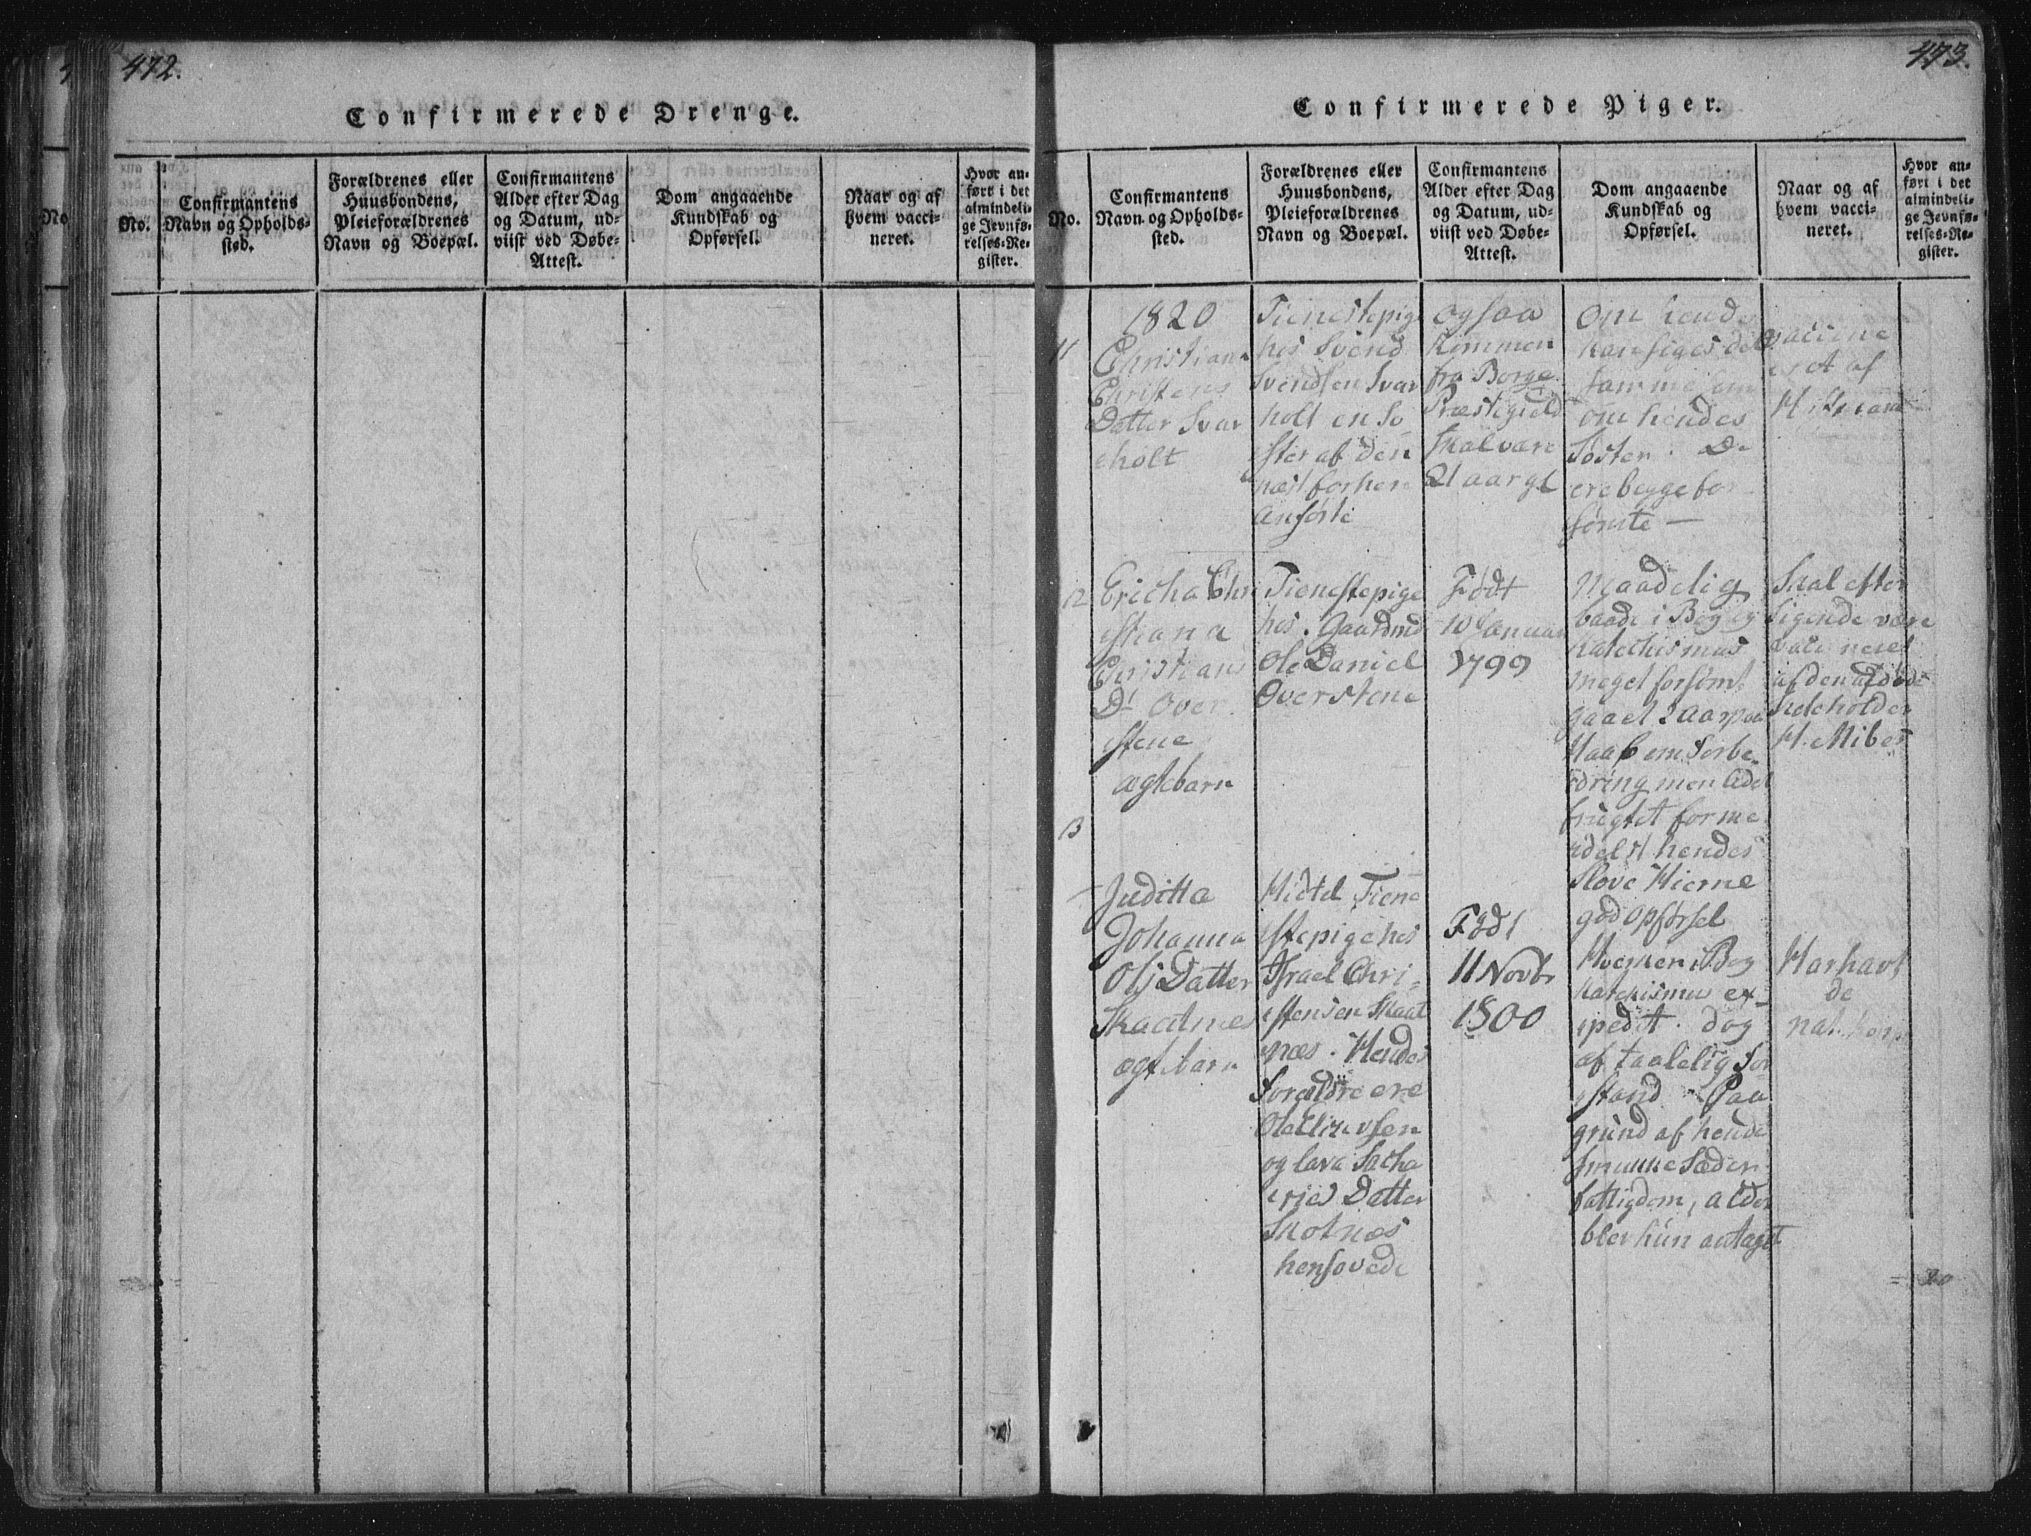 472.
Confirmerede Drenge.
No.
Confirmantens
Navn og Opholds-
sted.
Forældrenes eller
Huusbondens,
Pleieforældrenes
Navn og Boepæl.
Confirmantens
Alder efter Dag
og Datum, ud-
viist ved Døbe-
Attest.
Dom angaaende
Kundskab og
Opførsel.
Naar og af
hvem vacci-
neret.
Hvor an-
ført i det
almindeli-
ge Jevnfø-
relses-Re-
gister.
473.
Confirmerede Piger.
No.
Confirmantens
Navn og Opholds-
sted.
Forældrenes eller
Huusbondens,
Pleieforældrenes
Navn og Boepæl.
Confirmantens
Alder efter Dag
og Datum, ud-
viist ved Døbe-
Attest.
Dom angaaende
Kundskab og
Opførsel.
Naar og af
hvem vacci-
neret.
Hvor an-
ført i det
almindeli-
ge Jevnfø-
relses-Re-
gister.
11
1820
Christiana
Christens
Datter Svar
holt
Tienestepige
hos Svend
Svendsen Svar
holt en Sø
ster af den
næst forhen
anførte
ogsaa
kommen
fra Borge
Præstegield
skal være
21 aar gl
Om hende
kan siges det
samme som
om hendes
Søster. De
ere begge for
sømte —
vaccine
eret af
12
Ericha Chri
stiana
Christians
Dr Over
stene
ægtebarn
Tienestepige
hos Gaardmd
Ole Daniel
Overstene
Født
10 Januar
1799
Maadelig
baade i Bog og
Katechismus
meget forsømt
gaaet 2 aar paa
Haab om Forbe
dring men lidet
frugtet forme
delst hendes
sløve Hierne
god opførsel
Skal efter
sigende være
vaccineret
af den afdøde
H. Mibes
13
Juditta
Johanna
Ols Datter
Skaatnes
ægt barn
Hidtil Tiene
stepige hos
Israel Chri
stensen Skaat
næs. Hendes
Forældre ere
og Lava Sacha
rias Datter
Skotnæs
hensovede
Født
11 Novbr
1800
Hverken i Bog
Katekismus ex-
pedit. dog
af taalelig For
stand. Paa
grund af hende
smukke Sæder
fattigdom, alder
blev hun antaget
Har havt
de
nat. kop
20